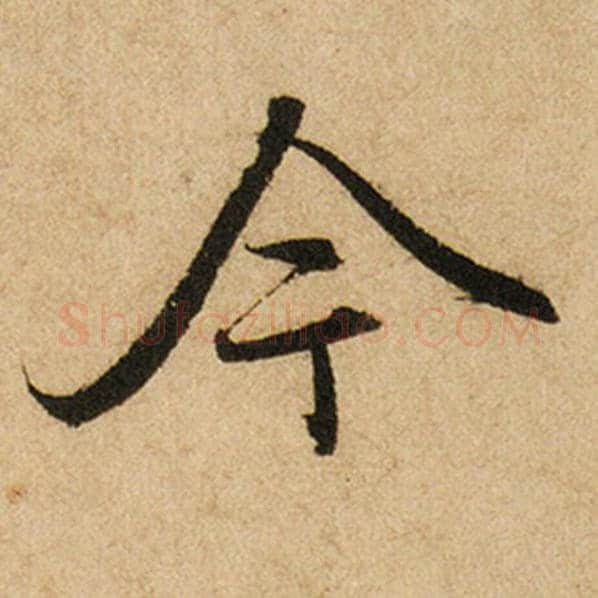 今
Shufaziliao.COM